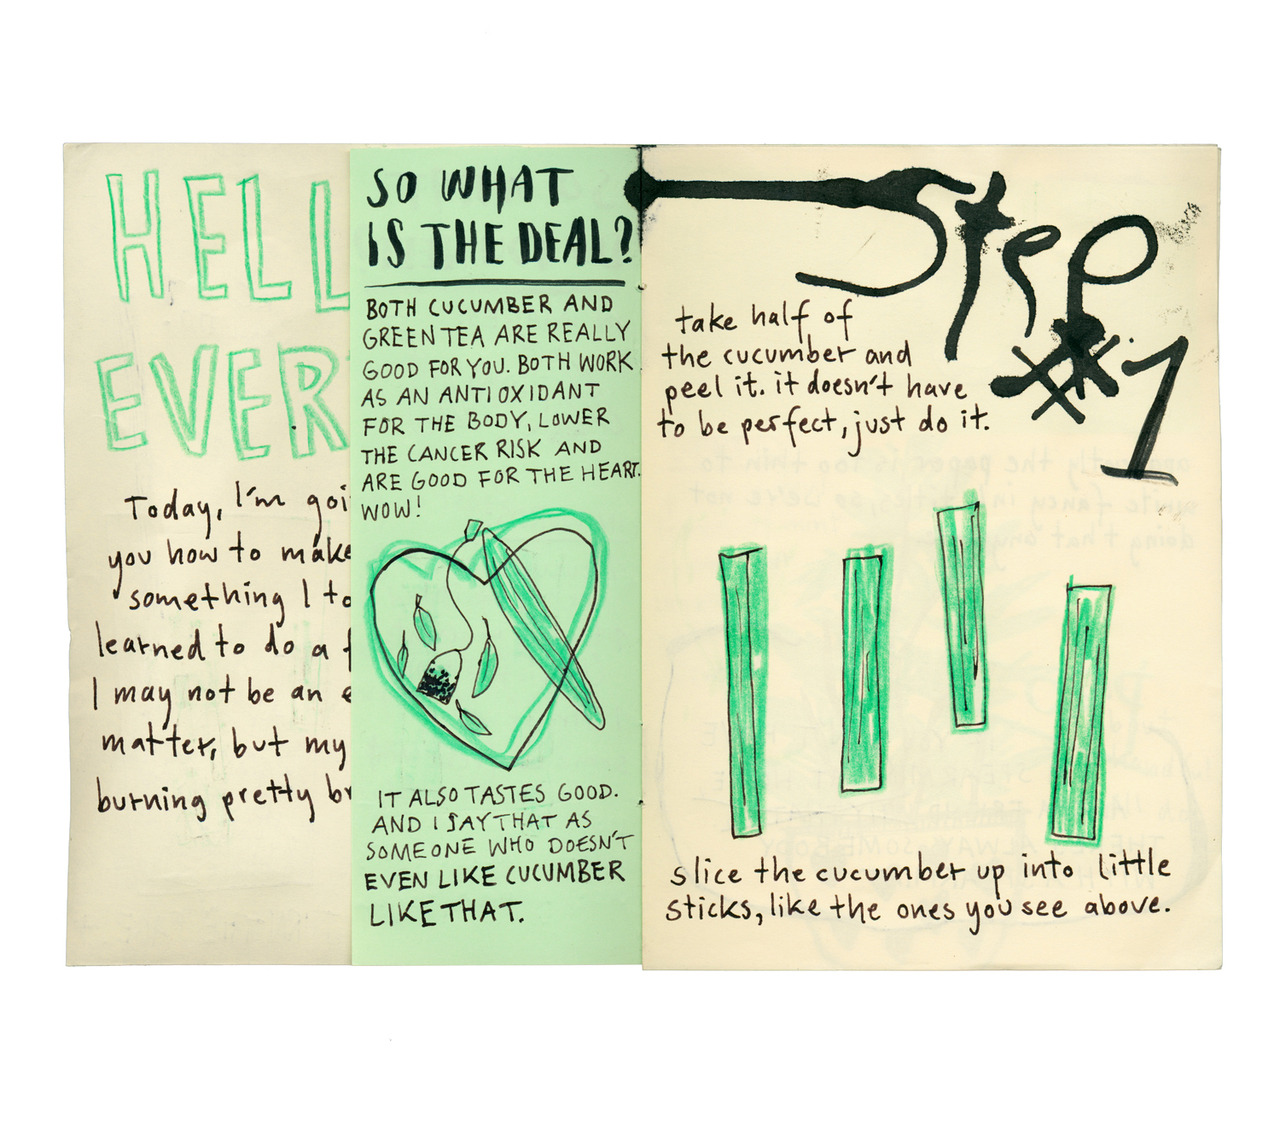 HELL
EVER
Today, I'm goi
you how to make
something I to
learned to do a f
I may not be an e
matter, but my
burning pretty br
SO WHAT
IS THE DEAL?
BOTH CUCUMBER AND
GREEN TEA ARE REALLY
GOOD FOR YOU. BOTH WORK
AS AN ANTIOXIDANT
FOR THE BODY, LOWER
THE CANCER RISK AND
ARE GOOD FOR THE HEART.
WOW!
IT ALSO TASTES GOOD.
AND I SAY THAT AS
SOMEONE WHO DOESN'T
EVEN LIKE CUCUMBER
LIKE THAT.
Step
#1
take half of
the cucumber and
peel it. it doesn't have
to be perfect, just do it.
slice the cucumber up into little
sticks, like the ones you see above.